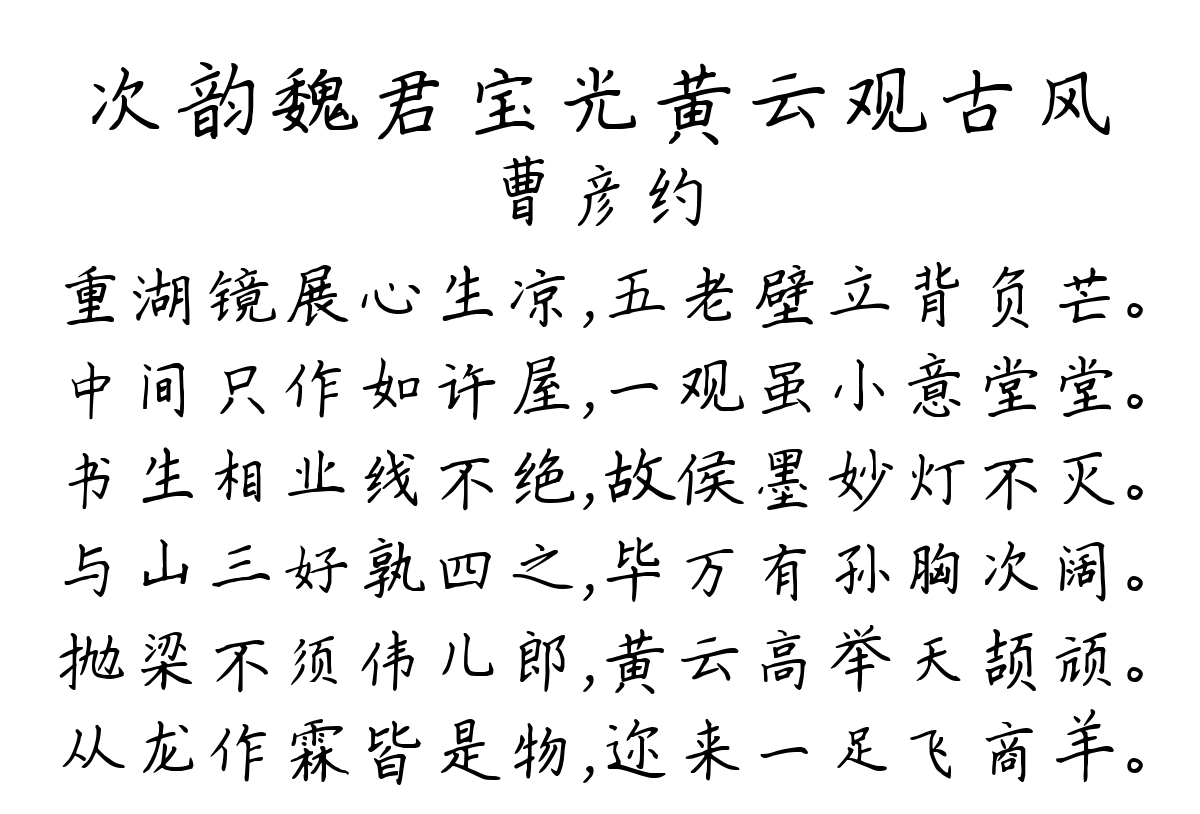 次韵魏君宝光黄云观古风
曹彦约
重湖镜展心生凉,五老壁立背负芒。
中间只作如许屋,一观虽小意堂堂。
书生相业线不绝,故侯墨妙灯不灭。
与山三好孰四之,毕万有孙胸次阔。
抛梁不须伟儿郎,黄云高举天颉颃。
从龙作霖皆是物,迩来一足飞商羊。